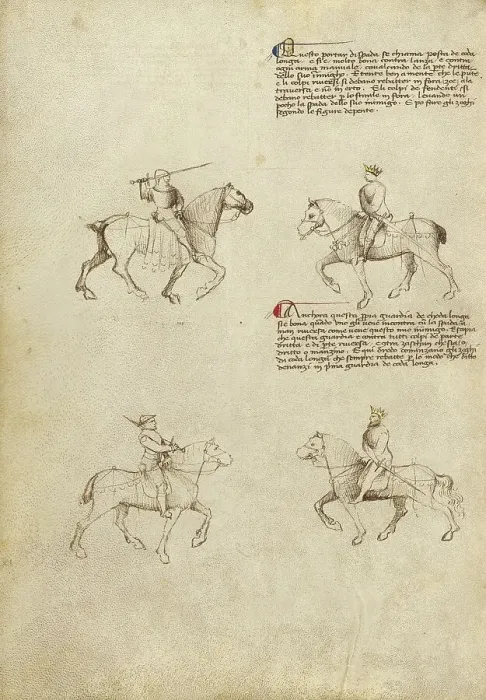 Questo portar di spada se chiama posta de coda
longa. e si è molto bona contra lanza e contra
ogni arma manuale, cavalcando de la parte dritta
dello suo inimigho. E tente ben a mente che le punte
e li colpi riversi si debano rebatter in fora zoe ala
traversa e non in erto. E li colpi de fendente si
debano rebatter per lo simile in fora, levando un
pocho la spada dello suo inimigo. E po fare gli zoghi
segondo le figure depente.
Anchora questa propria guardia de choda longa
si è bona quando uno gli vene incontra cum la spada a
man riversa come vene questo mio inimigo. E sapia
che questa guardia è contra tutti colpi de parte
dritta e di parte riversa, e contra zaschun che sia o
dritto o manzino. E qui dredo cominzano gli zoghi
da coda longa che sempre rebatte per lo modo che ditto
denanzi in prima guardia de coda longa.